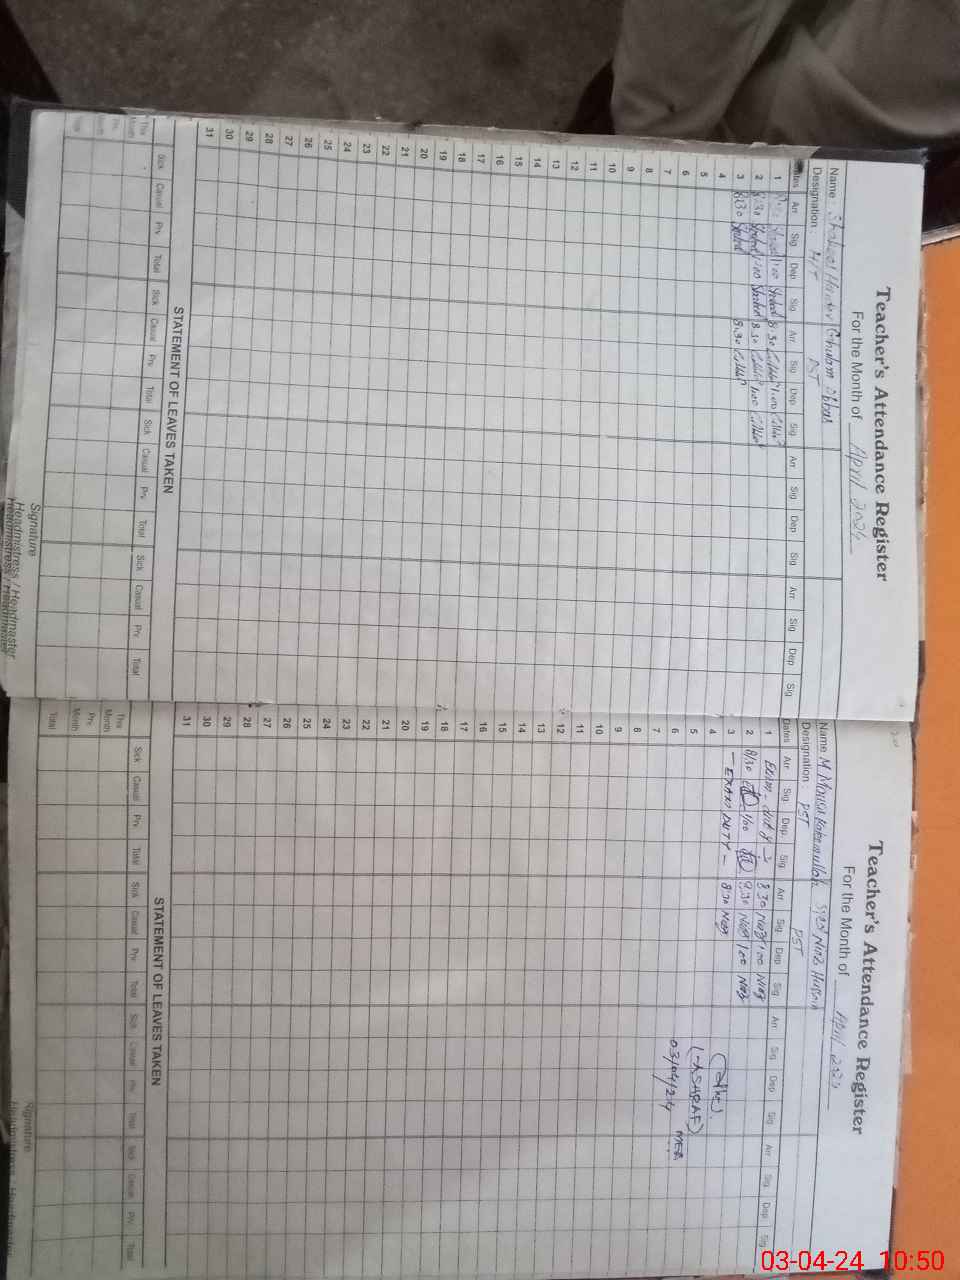 Teacher's Attendance Register
For the Month of April 2024
Name : Shakeel Haider Ghulam Abbas
Designation : H/T PST
Dates Arr Sig Dep Sig Arr Sig Dep Sig Arr Sig Dep Sig Arr Sig Dep Sig
1 1:00 8:30 1:00
2 8:30 1:00 8:30 1:00
3 8:30 8:30
4
5
6
7
8
9
10
11
12
13
14
15
16
17
18
19
20
21
22
23
24
25
26
27
28
29
30
31
STATEMENT OF LEAVES TAKEN
Sick Casual Prv Total Sick Casual Prv Total Sick Casual Prv Total Sick Casual Prv Total
This Month
Prv. Month
Total
Signature
Headmistress / Headmaster
Teacher's Attendance Register
For the Month of April 2024
Name M. Syed Niaz Hussain
Designation : PST PST
Dates Arr Sig Dep. Sig Arr Sig Dep Sig Arr Sig Dep Sig Arr Sig Dep Sig
1 Exam duty 8:30 Niaz 1:00 Niaz
2 8/30 1/00 8:30 Niaz 1:00 Niaz
3 — EXAM DUTY — 8:30 Niaz
4
5 (ASHRAF)
6 03/04/24
7
8
9
10
11
12
13
14
15
16
17
18
19
20
21
22
23
24
25
26
27
28
29
30
31
STATEMENT OF LEAVES TAKEN
Sick Casual Prv Total Sick Casual Prv Total Sick Casual Prv Total Sick Casual Prv Total
This Month
Prv. Month
Total
Signature
03-04-24 10:50